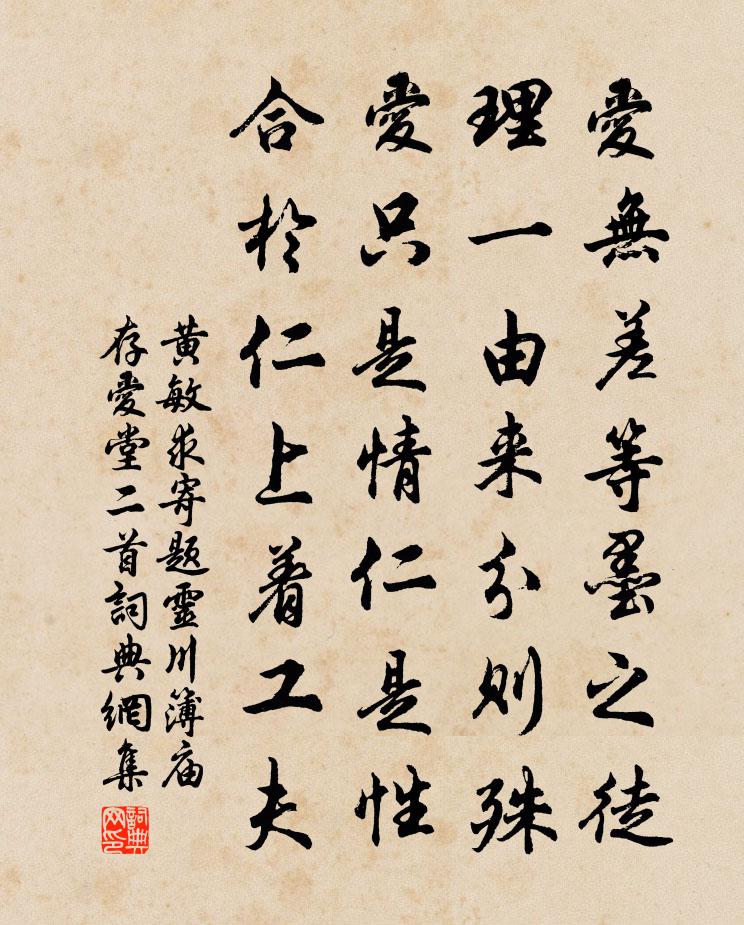 愛無差等墨之徒
理一由来分則殊
愛只是情仁是性
合於仁上着工夫
黄敏求寄題靈川簿庙
存愛堂二首詞典網集
詞典网印